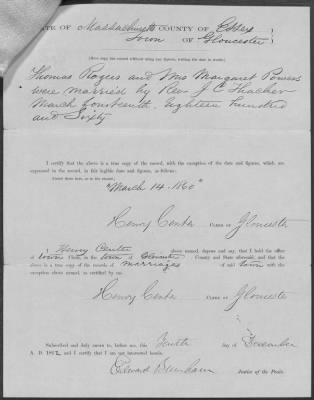 TE OF Massachusetts COUNTY OF Essex
Town OF Gloucester
[Here copy the record without using any figures, writing the date in words.]
Thomas Rogers and Mrs Margaret Powers
were married by Rev J C Thacher
March fourteenth. Eighteen hundred
and Sixty
I certify that the above is a true copy of the record, with the exception of the date and figures, which are
expressed in the record, in this legible date and figures, as follows:
"March 14. 1860"
Henry Center CLERK OF Gloucester
I, Henry Center above named, depose and say, that I hold the office
of town Clerk, in the town of Gloucester County and State aforesaid; and that the
above is a true copy of the records of marriages of said town with the
exception above named, as certified by me.
Henry Center CLERK OF Gloucester
Subscribed and duly sworn to, before me, this Tenth day of December
A. D. 186 and I certify that I am not interested herein.
Edward Justice of the Peace.